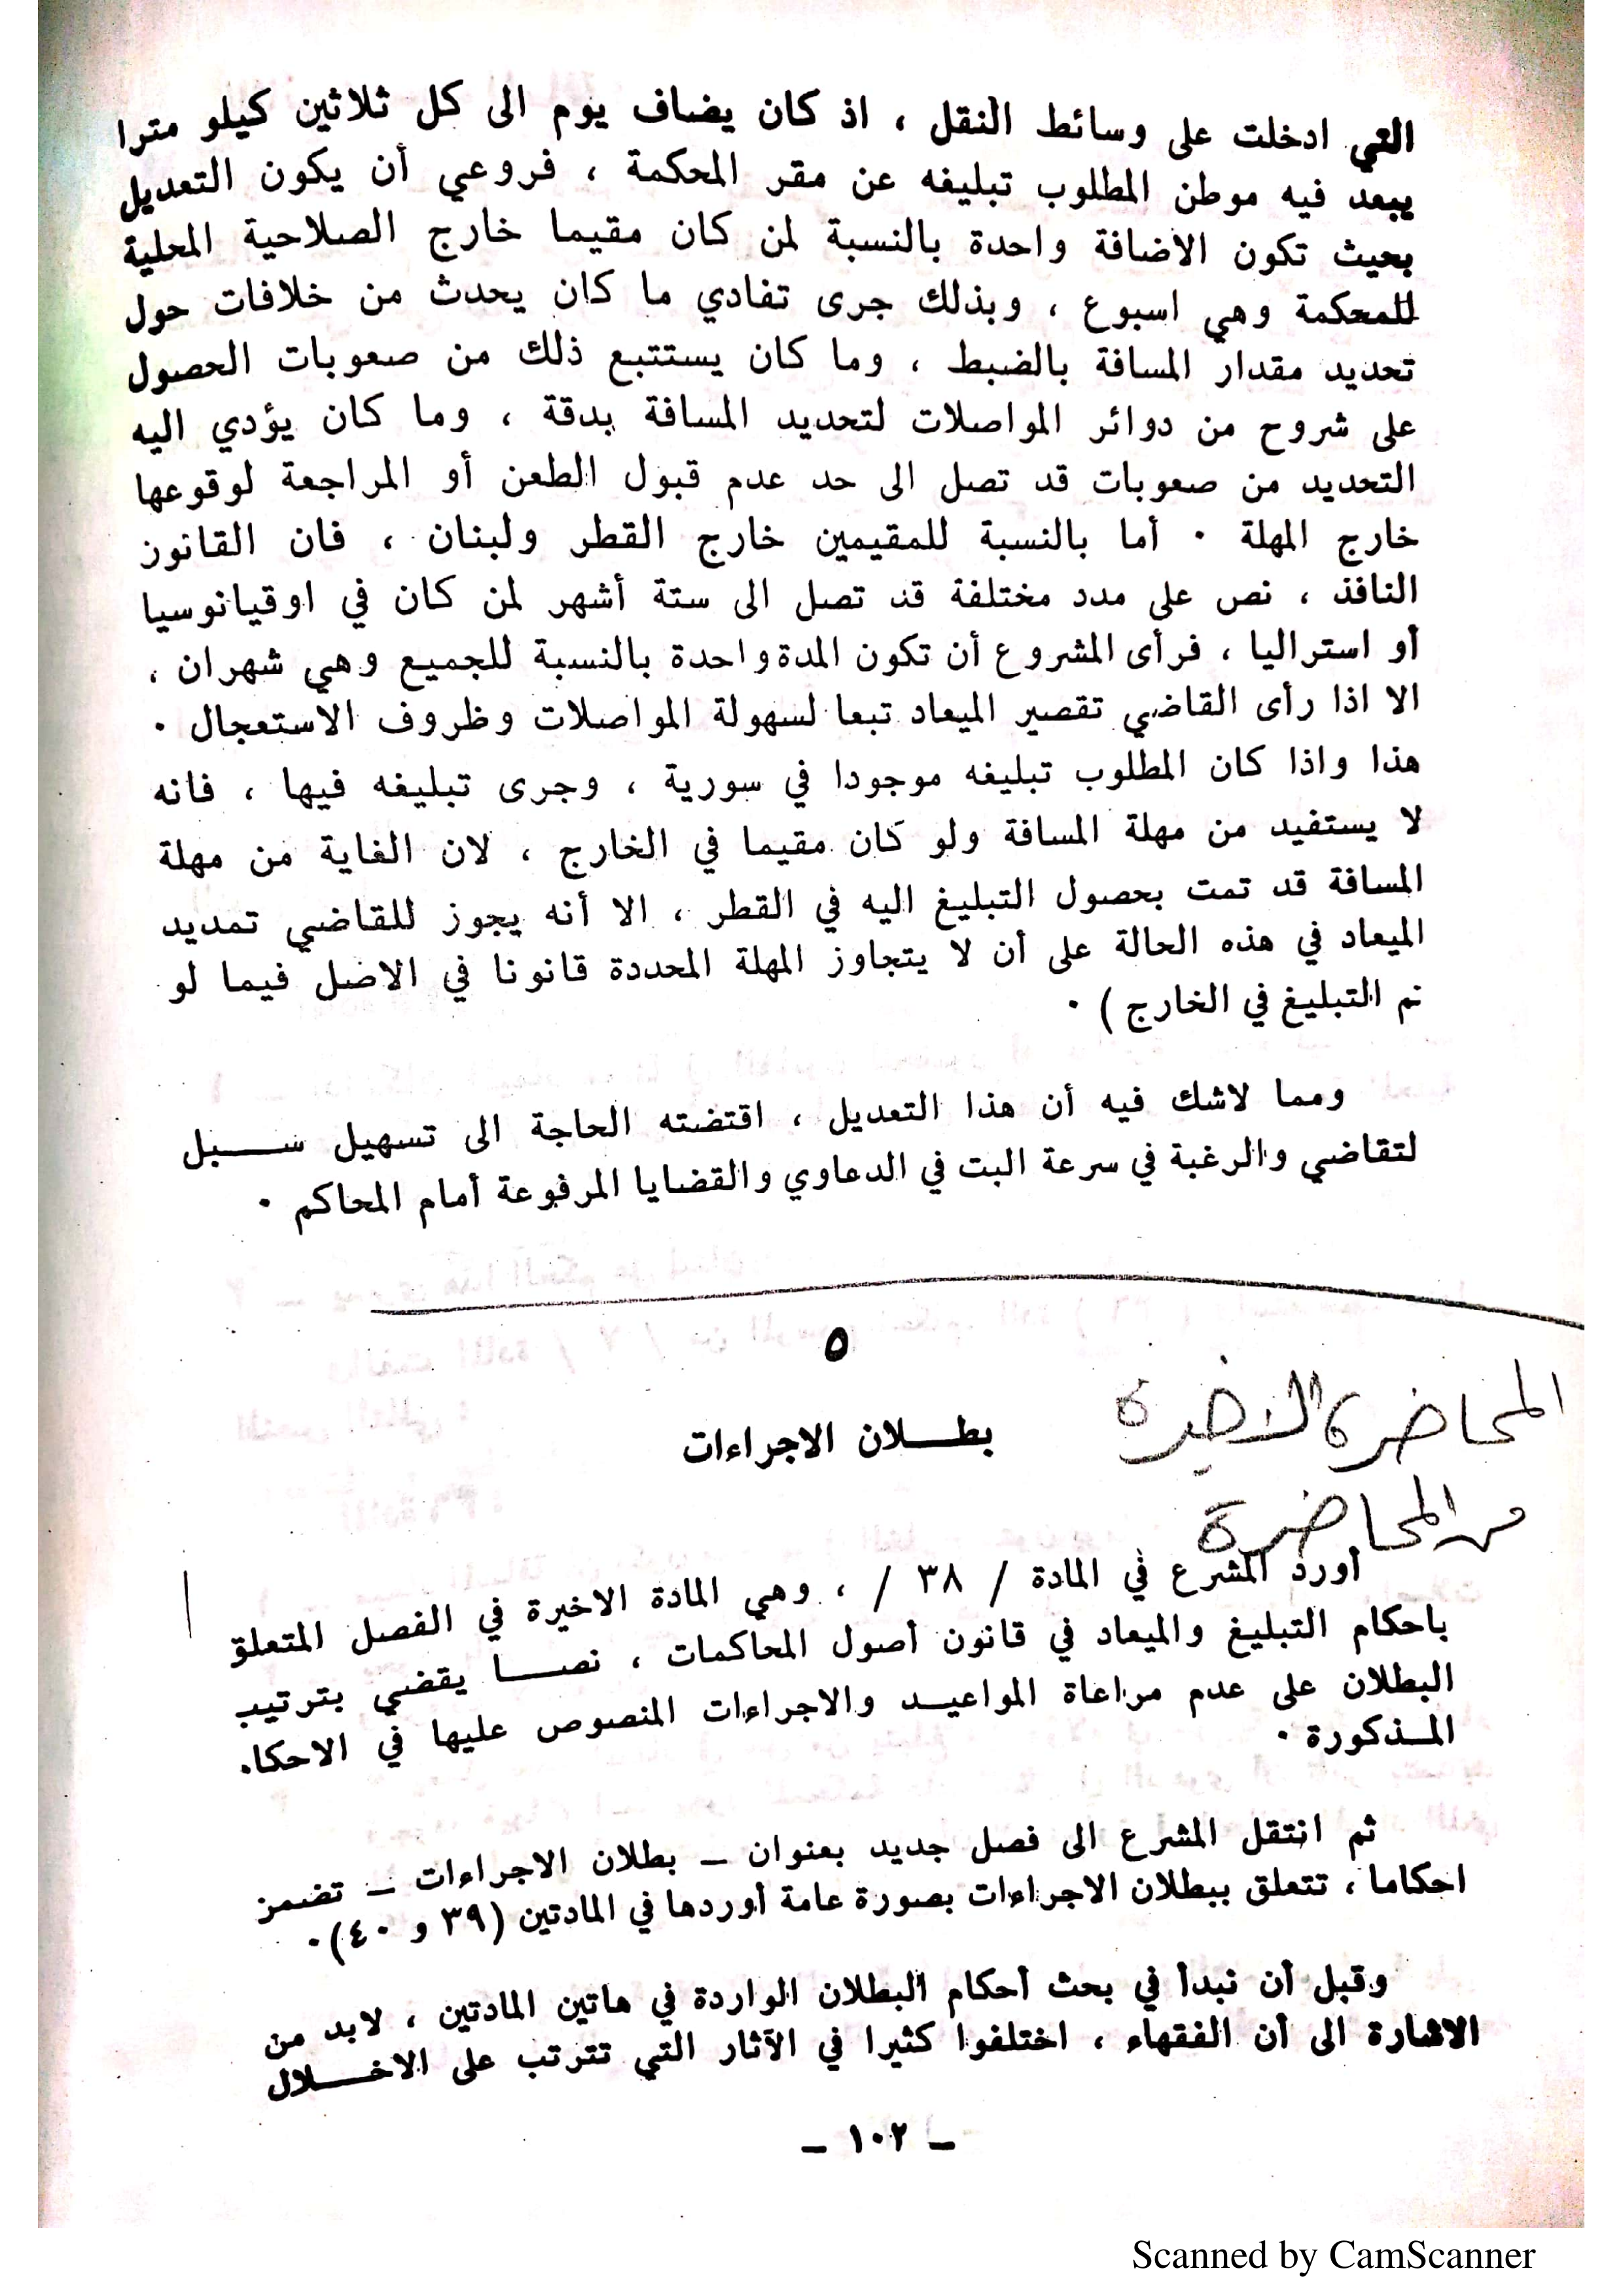 التي ادخلت على وسائط النقل ، اذ كان يضاف يوم الى كل ثلاثين كيلو مترا
يبعد فيه موطن المطلوب تبليغه عن مقر المحكمة ، فروعي أن يكون التعديل
بحيث تكون الاضافة واحدة بالنسبة لمن كان مقيما خارج الصلاحية المحلية
للمحكمة وهي اسبوع ، وبذلك جرى تفادي ما كان يحدث من خلافات حول
تحديد مقدار المسافة بالضبط ، وما كان يستتبع ذلك من صعوبات الحصول
على شروح من دوائر المواصلات لتحديد المسافة بدقة ، وما كان يؤدي اليه
التحديد من صعوبات قد تصل الى حد عدم قبول الطعن أو المراجعة لوقوعها
خارج المهلة . أما بالنسبة للمقيمين خارج القطر ولبنان ، فان القانون
النافذ ، نص على مدد مختلفة قد تصل الى ستة أشهر لمن كان في اوقيانوسيا
أو استراليا ، فرأى المشروع أن تكون المدة واحدة بالنسبة للجميع وهي شهران ،
الا اذا رأى القاضي تقصير الميعاد تبعا لسهولة المواصلات وظروف الاستعجال .
هذا واذا كان المطلوب تبليغه موجودا في سورية ، وجرى تبليغه فيها ، فانه
لا يستفيد من مهلة المسافة ولو كان مقيما في الخارج ، لان الغاية من مهلة
المسافة قد تمت بحصول التبليغ اليه في القطر ، الا أنه يجوز للقاضي تمديد
الميعاد في هذه الحالة على أن لا يتجاوز المهلة المحددة قانونا في الاصل فيما لو
تم التبليغ في الخارج ) .
ومما لاشك فيه أن هذا التعديل ، اقتضته الحاجة الى تسهيل ســـبل
لتقاضي والرغبة في سرعة البت في الدعاوي والقضايا المرفوعة أمام المحاكم .
٥
المحاضرة الاخيرة
بطـــلان الاجراءات
من المحاضرة
أورد المشرع في المادة / ٣٨ / ، وهي المادة الاخيرة في الفصل المتعلق
باحكام التبليغ والميعاد في قانون أصول المحاكمات ، نصـــا يقضي بترتيب
البطلان على عدم مراعاة المواعيــد والاجراءات المنصوص عليها في الاحكا.
المــذكورة .
ثم انتقل المشرع الى فصل جديد بعنوان – بطلان الاجراءات – تضمن
احكاما ، تتعلق ببطلان الاجراءات بصورة عامة أوردها في المادتين (٣٩ و ٤٠) .
وقبل أن نبدأ في بحث أحكام البطلان الواردة في هاتين المادتين ، لابد من
الاشارة الى أن الفقهاء ، اختلفوا كثيرا في الآثار التي تترتب على الاخـــلال
– ١٠٢ –
Scanned by CamScanner